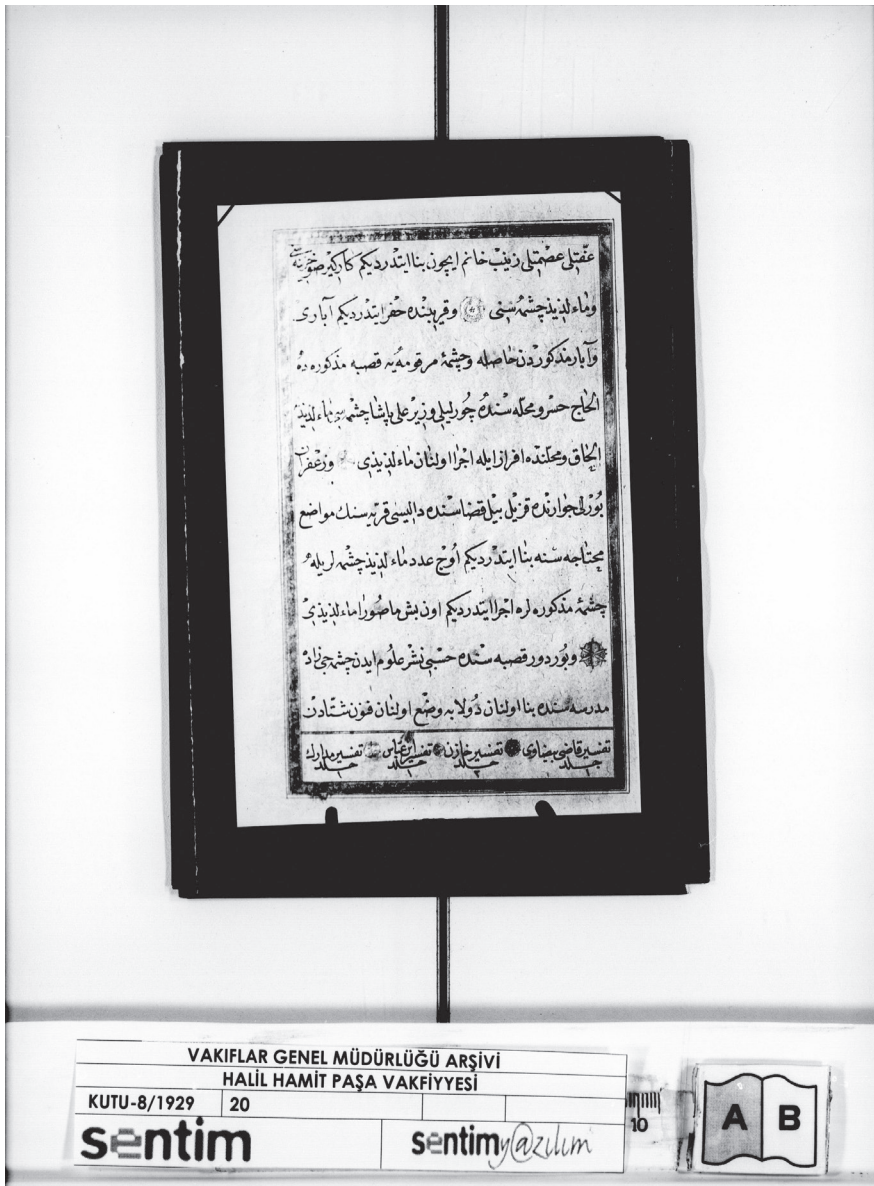 عفتلى عصمتلى زينب خانم ايچون بنا ايتدرديكم كاركير
وماء لذيذ چشمه سنى وقربنده حفر ايتدرديكم آبارى
وآبار مذكوردن حاصله وچشمهٔ مرقومه يه قصبه مذكوره ده
الحاج خسرو محله سنده چورليلى وزير على پاشا چشمه سى ماء لذيذ
الحاق ومحلنده افراز ايله اجرا اولنان ماء لذيذى وزعفران
بورلى جوارنده قزيل بيل قضاسنده داليسى قريه سنك مواضع
محتاجه سنه بنا ايتدرديكم اوج عدد ماء لذيذ چشمه لريله
چشمهٔ مذكوره لره اجرا ايتدرديكم اون بش ماصورا ماء لذيذى
وبوردور قصبه سنده حسبى نشر علوم ايدن چشمه جى زاده
مدرسه سنده بنا اولنان دولابه وضع اولنان فنون شتادن
تفسير قاضى بيضاوى جلد تفسير خازن جلد تفسير ابن عباس جلد تفسير مدارك جلد
VAKIFLAR GENEL MÜDÜRLÜĞÜ ARŞİVİ
HALİL HAMİT PAŞA VAKFİYYESİ
KUTU-8/1929 20
10
A B
sentim sentim y@zılım